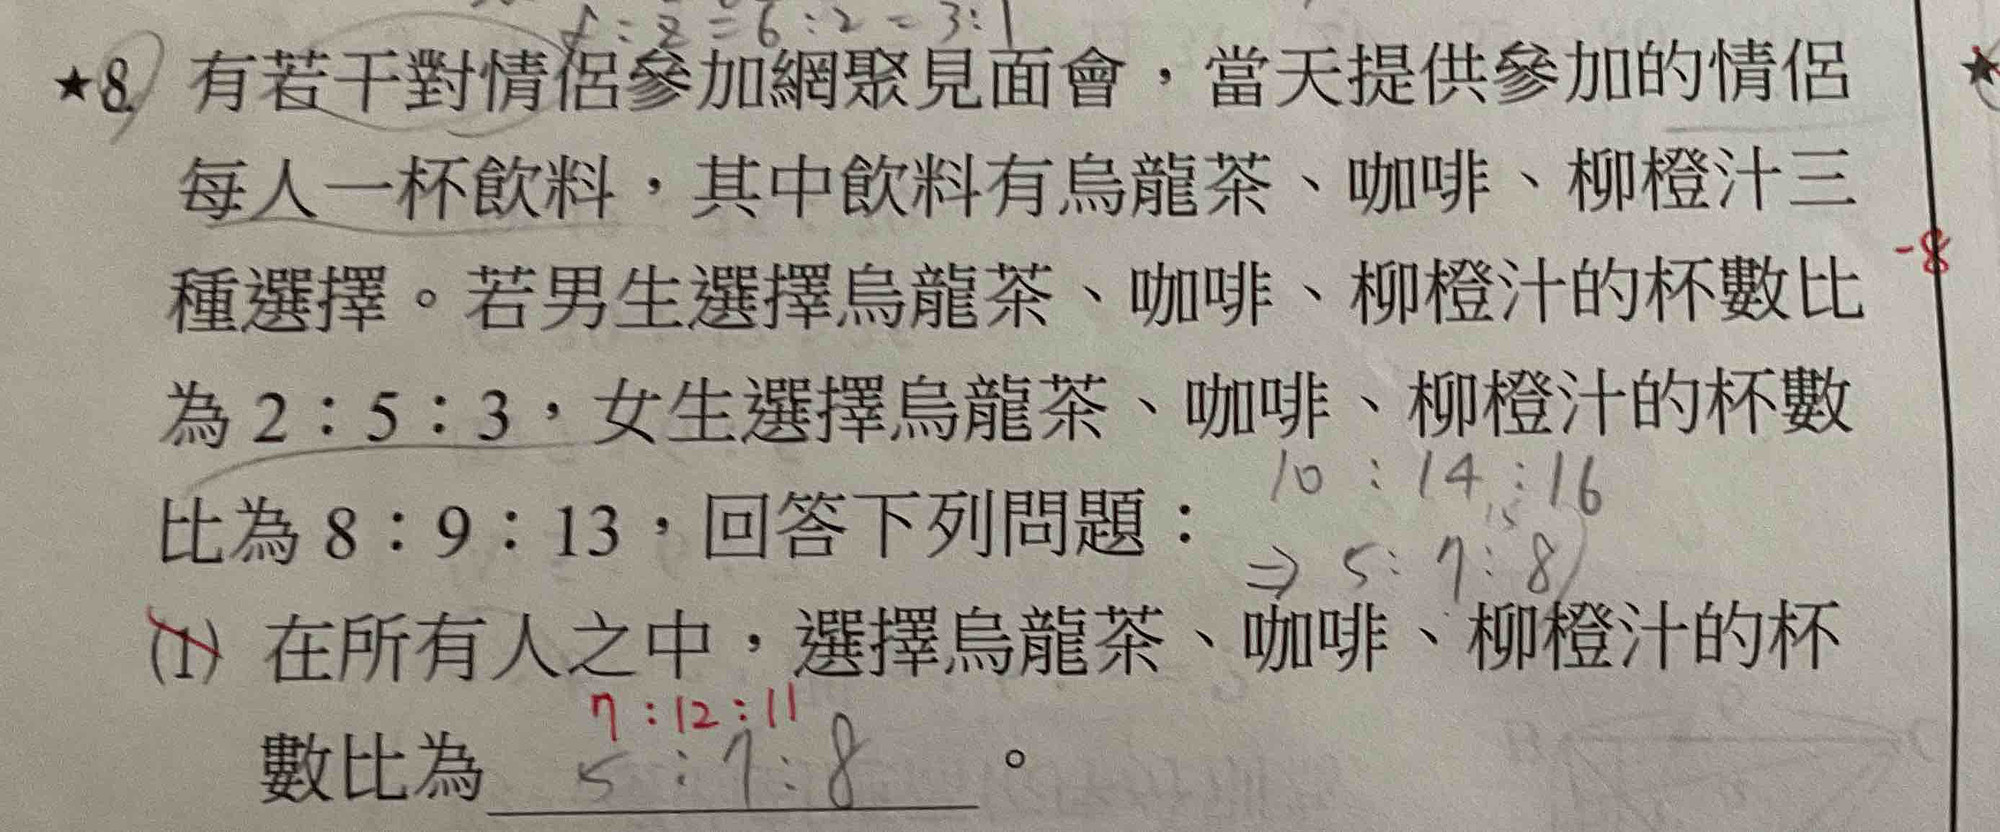 : 2 = 6 : 2 = 3 : 1
★8. 有若干對情侶參加網聚見面會，當天提供參加的情侶
每人一杯飲料，其中飲料有烏龍茶、咖啡、柳橙汁三
種選擇。若男生選擇烏龍茶、咖啡、柳橙汁的杯數比
-8
為 2：5：3，女生選擇烏龍茶、咖啡、柳橙汁的杯數
10 : 14 : 16
比為 8：9：13，回答下列問題：
15
⇒ 5 : 7 : 8
(1) 在所有人之中，選擇烏龍茶、咖啡、柳橙汁的杯
7 : 12 : 11
數比為 5 : 7 : 8 。
★